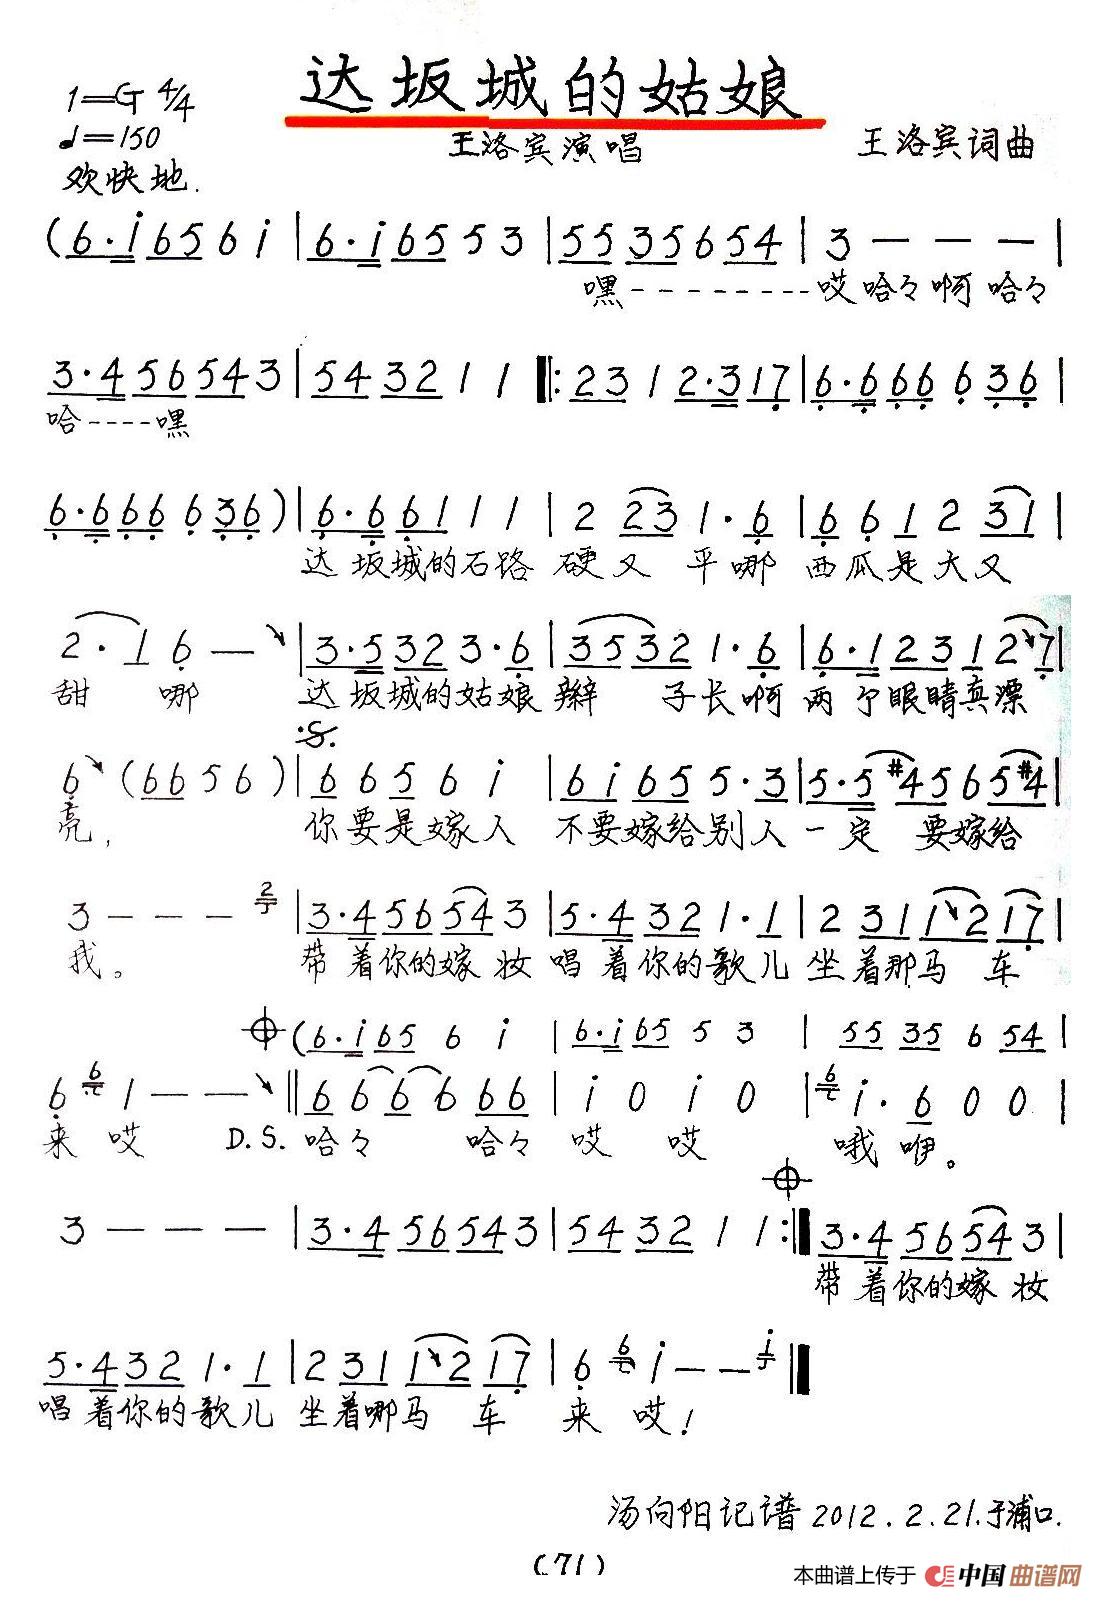 达坂城的姑娘
1=G 4/4
♩=150
王洛宾演唱
王洛宾词曲
欢快地.
(6·i 65 6 i | 6·i 65 5 3 | 55 35 6 54 | 3 — — — |
嘿--------哎哈々啊哈々
3·4 56 54 3 | 54 32 1 1 ‖: 23 1 2·3 17 | 6·6 66 6 36 |
哈----嘿
6·6 66 6 36 ) | 6·6 61 1 1 | 2 23 1·6 | 6 6 1 2 31 |
达坂城的石路 硬又 平哪 西瓜是大又
2·1 6 — | 3·5 32 3·6 | 35 32 1·6 | 6·1 23 1 27 |
甜 哪 达坂城的姑娘 辫 子长啊 两个眼睛真漂
𝄋
6 (66 5 6 ) | 6 6 5 6 i | 6 i 65 5·3 | 5·5 #45 6 5#4 |
亮, 你要是嫁人 不要嫁给别人 一定 要嫁给
3 — — — 2 | 3·4 56 54 3 | 5·4 32 1·1 | 2 31 12 17 |
我。 带着你的嫁妆 唱着你的歌儿 坐着那马 车
(6·i 65 6 i | 6·i 65 5 3 | 55 35 6 54 |
6 6 1 — — ‖ 6 6 6 6 66 | i 0 i 0 | 6 i·6 0 0 |
来 哎 D.S. 哈々 哈々 哎 哎 哦咿。
3 — — — | 3·4 56 54 3 | 54 32 1 1 :‖ 3·4 56 54 3 |
带着你的嫁妆
5·4 32 1·1 | 2 31 12 17 | 6 6 i — — i ‖
唱着你的歌儿 坐着哪马 车 来 哎!
汤向阳记谱 2012.2.21.于浦口.
(71)
本曲谱上传于 中国曲谱网